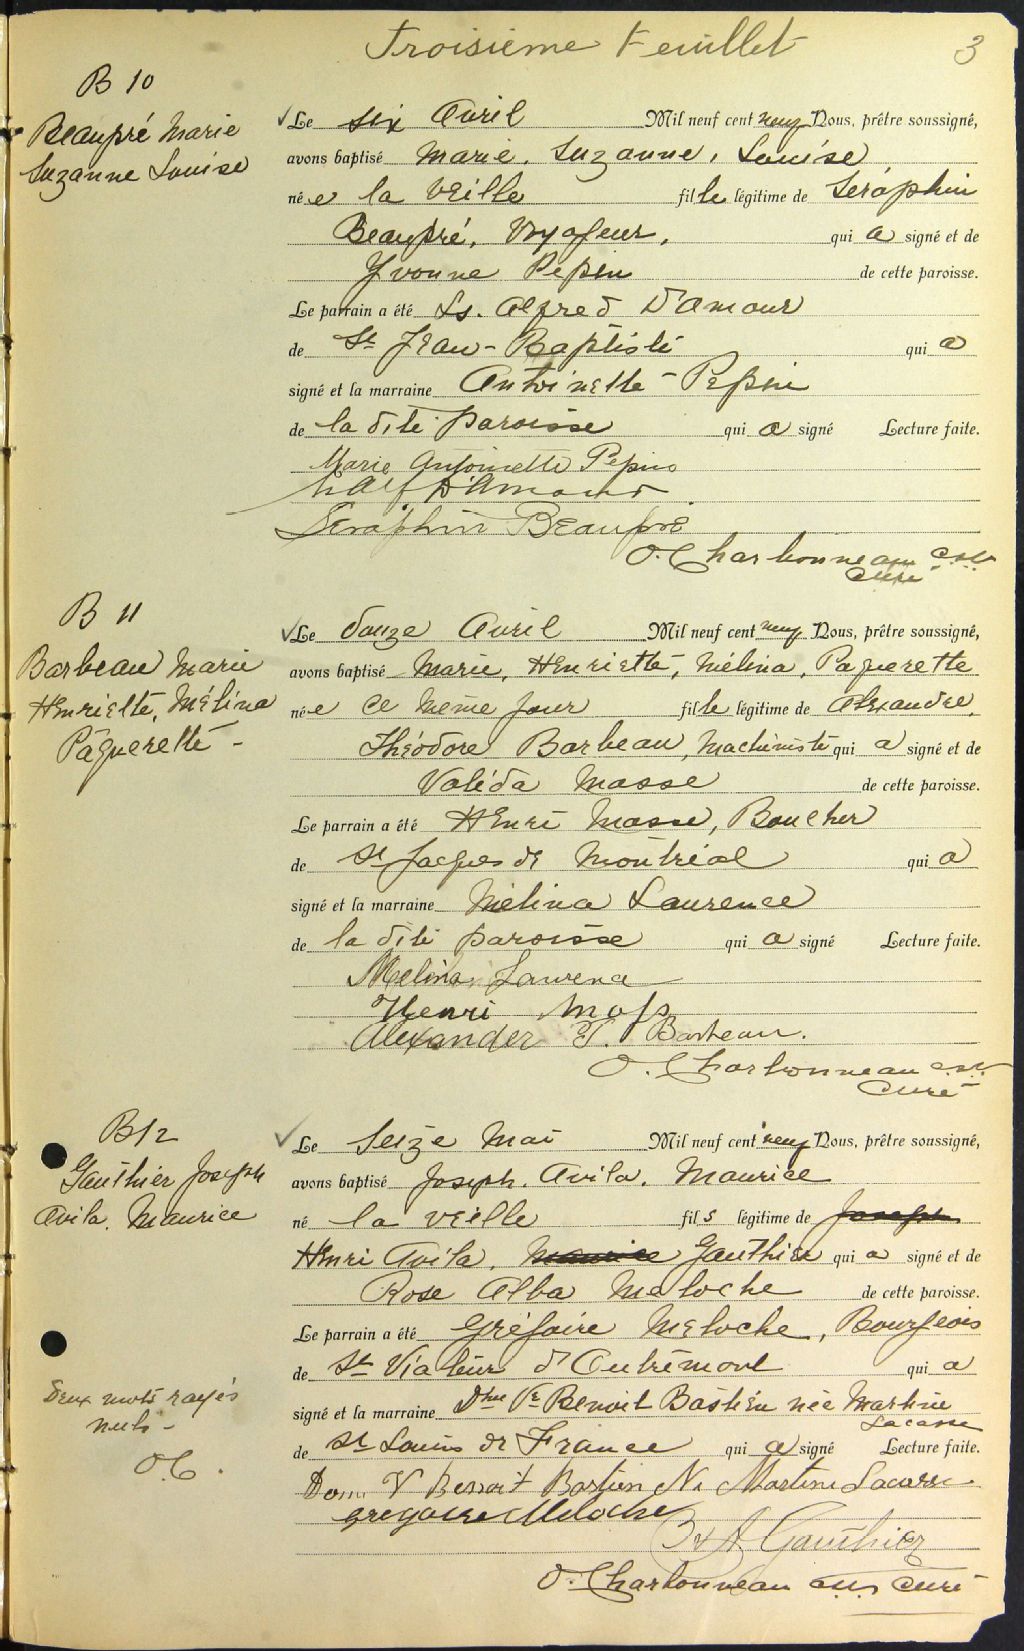 Troisième Feuillet 3
B 10
Beaupré Marie
Suzanne Louise
Le six Avril Mil neuf cent neuf Nous, prêtre soussigné,
avons baptisé Marie, Suzanne, Louise
née la veille fille légitime de Séraphin
Beaupré, Voyageur, qui a signé et de
Yvonne Pepin de cette paroisse.
Le parrain a été Ls. Alfred D'Amour
de St Jean-Baptiste qui a
signé et la marraine Antoinette Pepin
de la dite paroisse qui a signé Lecture faite.
Marie Antoinette Pepin
L. Alf D'Amour
Seraphin Beaupré
O. Charbonneau
curé
B 11
Barbeau Marie
Henriette, Mélina
Pâquerette -
Le douze Avril Mil neuf cent neuf Nous, prêtre soussigné,
avons baptisé Marie, Henriette, Mélina, Paquerette
née ce même jour fille légitime de Alexandre,
Théodore Barbeau, Machiniste qui a signé et de
Valéda Masse de cette paroisse.
Le parrain a été Henri Masse, Boucher
de St Jacques de Montréal qui a
signé et la marraine Mélina Laurence
de la dite paroisse qui a signé Lecture faite.
Melina Laurence
Henri Mass
Alexander T. Barbeau.
O. Charbonneau
curé
B 12
Gauthier Joseph
Avila, Maurice
Le seize Mai Mil neuf cent neuf Nous, prêtre soussigné,
avons baptisé Joseph, Avila, Maurice
né la veille fils légitime de Joseph
Henri Avila, Maurice Gauthier qui a signé et de
Rose Alba Meloche de cette paroisse.
Le parrain a été Grégoire Meloche, Bourgeois
de St Viateur d'Outremont qui a
signé et la marraine Dme Ve Benoit Bastien née Martine
Lacasse
de St Louis de France qui a signé Lecture faite.
Deux mots rayés
nuls -
O.C.
Dom V Benoit Bastien Né Martine Lacasse
Gregoire Meloche
A Gauthier
O. Charbonneau curé